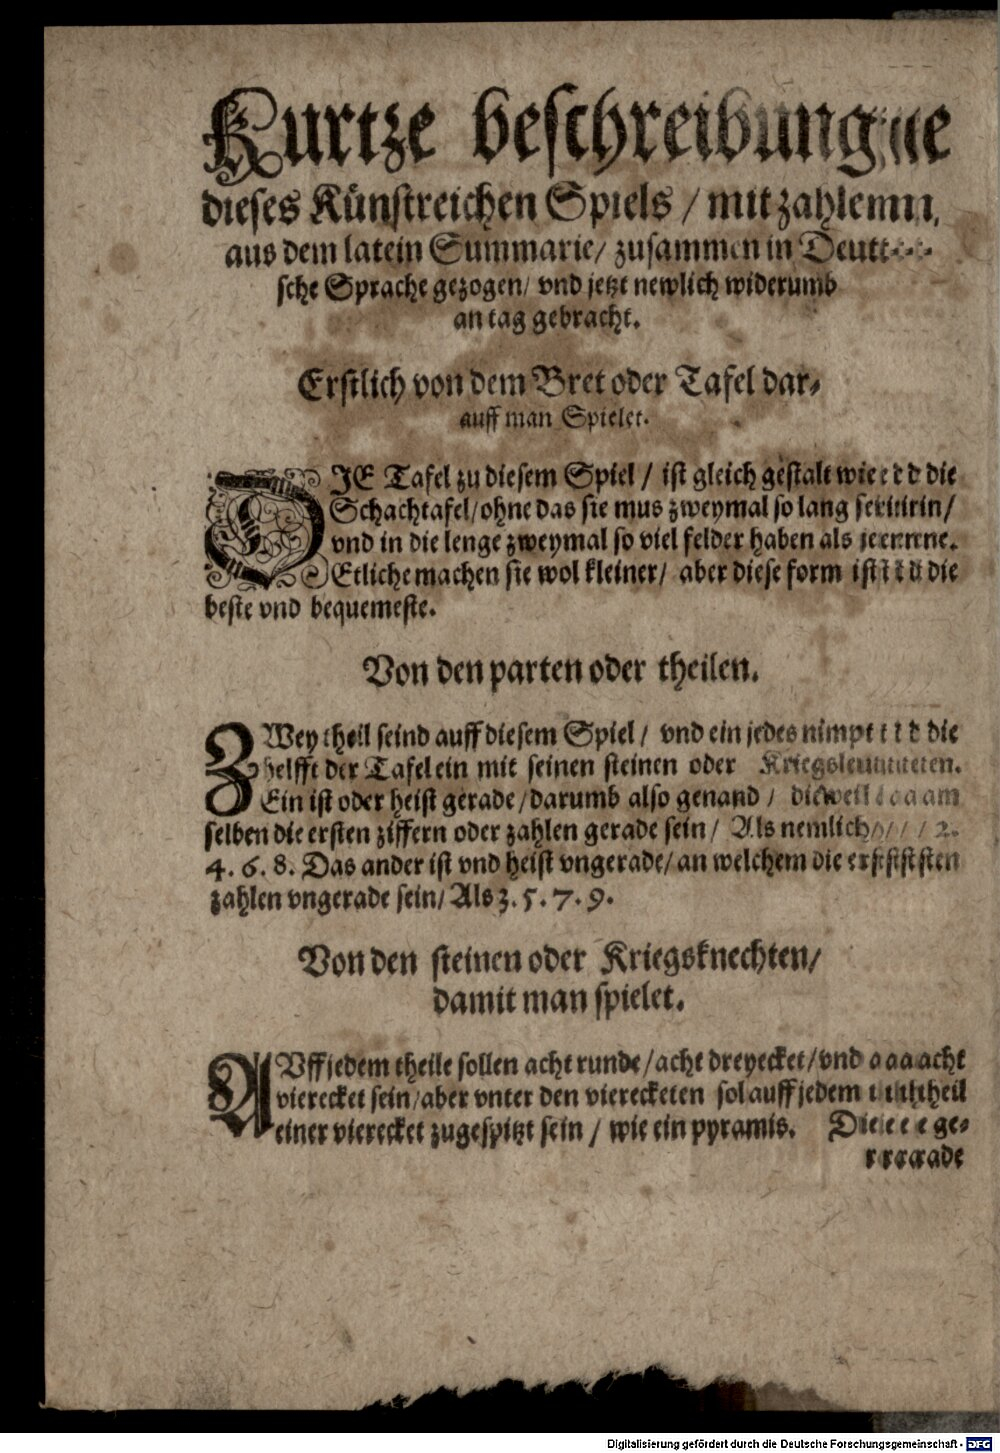 Kurtze beschreibung
dieses Künstreichen Spiels / mit zahlen
aus dem latein Summarie / zusammen in Deut-
sche Sprache gezogen / vnd jetzt newlich widerumb
an tag gebracht.
Erstlich von dem Bret oder Tafel dar-
auff man Spielet.
DIE Tafel zu diesem Spiel / ist gleich gestalt wie die
Schachtafel / ohne das sie mus zweymal so lang sein /
vnd in die lenge zweymal so viel felder haben als jene.
Etliche machen sie wol kleiner / aber diese form ist die
beste vnd bequemeste.
Von den parten oder theilen.
ZWey theil seind auff diesem Spiel / vnd ein jedes nimpt die
helfft der Tafel ein mit seinen steinen oder Kriegsleuten.
Ein ist oder heist gerade / darumb also genand / dieweil am
selben die ersten ziffern oder zahlen gerade sein / Als nemlich / 2.
4. 6. 8. Das ander ist vnd heist vngerade / an welchem die ersten
zahlen vngerade sein / Als 3. 5. 7. 9.
Von den steinen oder Kriegsknechten /
damit man spielet.
AVff jedem theile sollen acht runde / acht dreyecket / vnd acht
vierecket sein / aber vnter den vierecketen sol auff jedem theil
einer vierecket zugespitzt sein / wie ein pyramis. Die ge-
rade
Digitalisierung gefördert durch die Deutsche Forschungsgemeinschaft - DFG